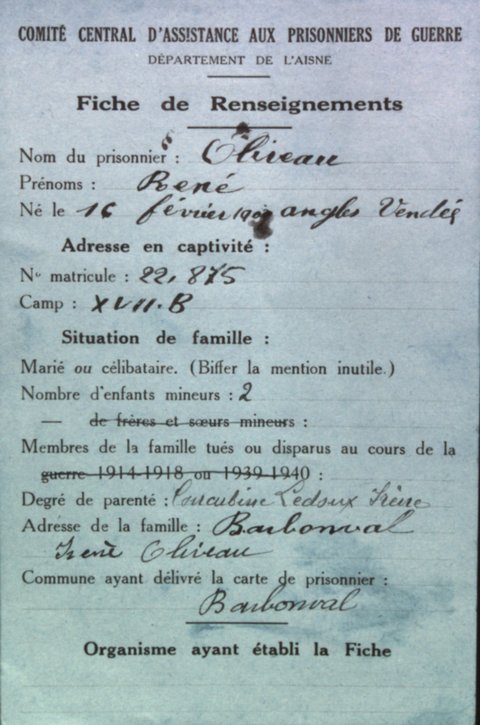 COMITÉ CENTRAL D'ASSISTANCE AUX PRISONNIERS DE GUERRE
DÉPARTEMENT DE L'AISNE
Fiche de Renseignements
Nom du prisonnier : Oliveau
Prénoms : René
Né le 16 février angles Vendée
Adresse en captivité :
N° matricule : 22.875
Camp : XVII.B
Situation de famille :
Marié ou célibataire. (Biffer la mention inutile.)
Nombre d'enfants mineurs : 2
— de frères et sœurs mineurs :
Membres de la famille tués ou disparus au cours de la
guerre 1914-1918 ou 1939-1940 :
Degré de parenté : Concubine Ledoux Irène
Adresse de la famille : Barbonval
Irenè Oliveau
Commune ayant délivré la carte de prisonnier :
Barbonval
Organisme ayant établi la Fiche